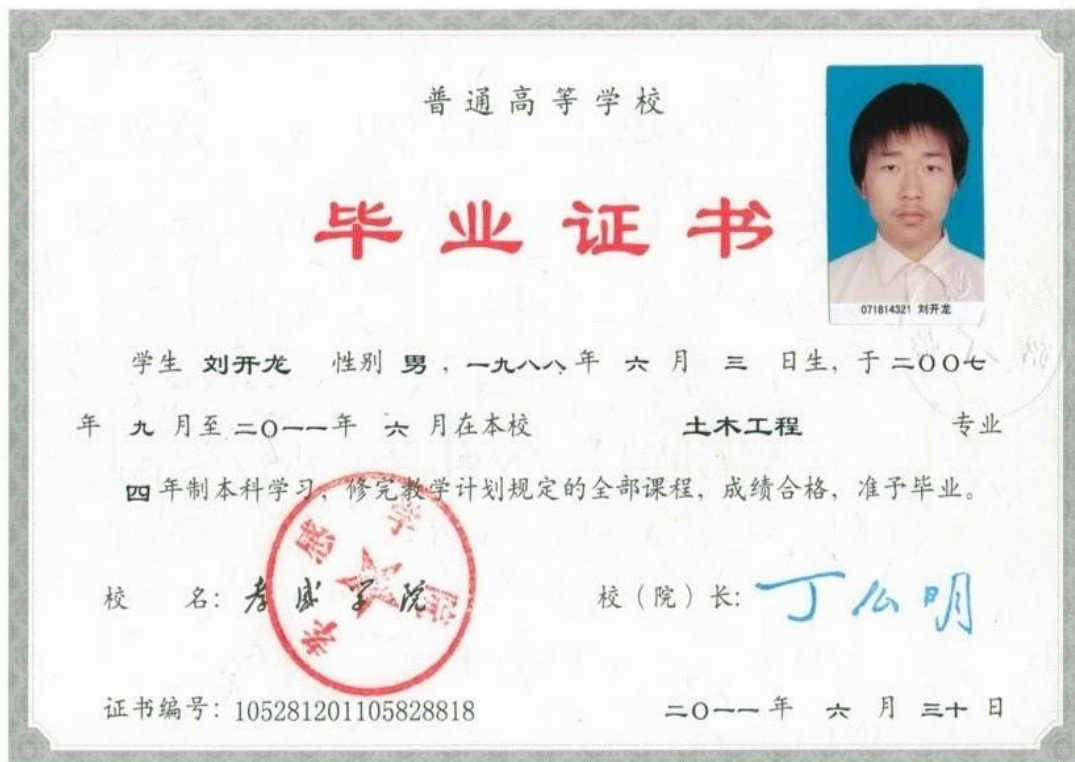 普通高等学校
毕业证书
071814321 刘开龙
学生 刘开龙 性别 男，一九八八年 六 月 三 日生，于二〇〇七
年 九 月至二〇一一年 六 月在本校 土木工程 专业
四 年制本科学习，修完教学计划规定的全部课程，成绩合格，准予毕业。
校 名：孝感学院
孝感学院
校（院）长：丁么明
证书编号：105281201105828818
二〇一一年 六 月 三十 日